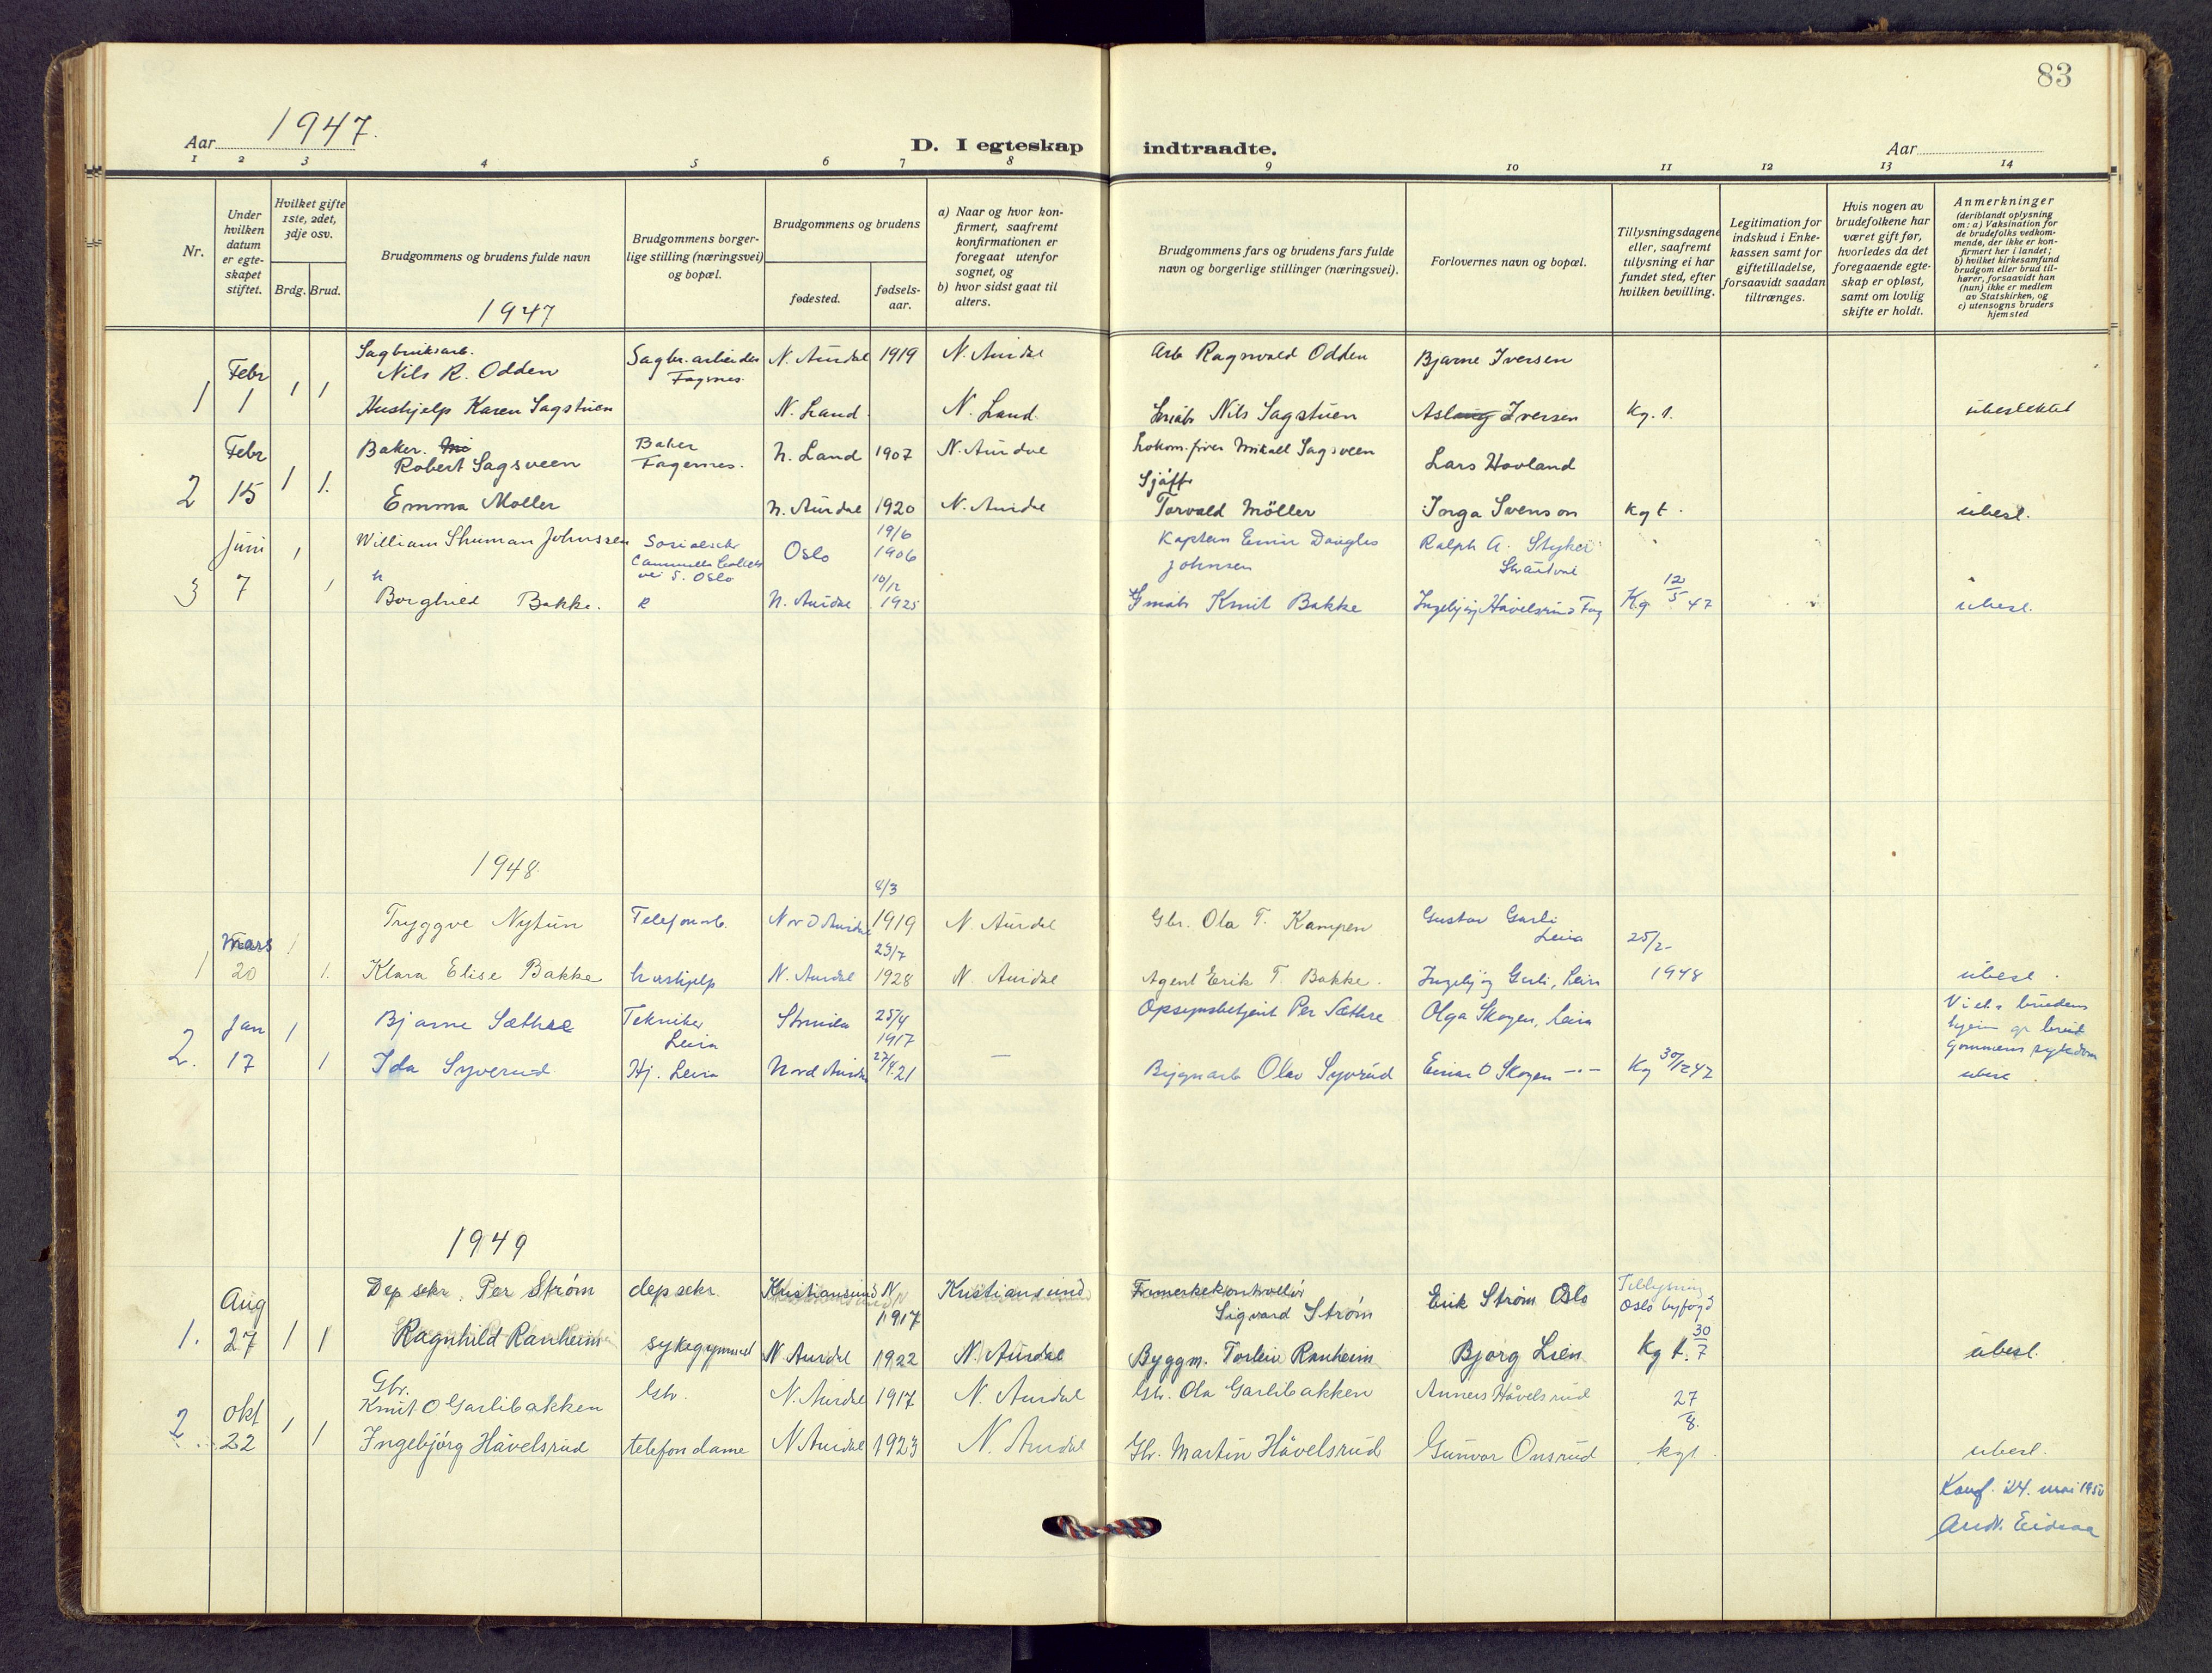 83
Aar 1947.
D. I egteskap indtraadte.
Aar
1 2 3 4 5 6 7 8 9 10 11 12 13 14
Nr.
Under hvilken datum er egte- skapet stiftet.
Hvilket gifte 1ste, 2det, 3dje osv.
Brdg. Brud.
Brudgommens og brudens fulde navn
Brudgommens borger- lige stilling (næringsvei) og bopæl.
Brudgommens og brudens
fødested.
fødsels- aar.
a) Naar og hvor kon- firmert, saafremt konfirmationen er foregaat utenfor sognet, og b) hvor sidst gaat til alters.
Brudgommens fars og brudens fars fulde navn og borgerlige stillinger (næringsvei).
Forlovernes navn og bopæl.
Tillysningsdagene eller, saafremt tillysning ei har fundet sted, efter hvilken bevilling.
Legitimation for indskud i Enke- kassen samt for giftetilladelse, forsaavidt saadan tiltrænges.
Hvis nogen av brudefolkene har været gift før, hvorledes da det foregaaende egte- skap er opløst, samt om lovlig skifte er holdt.
Anmerkninger (deriblandt oplysning om: a) Vaksination for de brudefolks vedkom- mende, der ikke er kon- firmert her i landet; b) hvilket kirkesamfund brudgom eller brud til- hører, forsaavidt han (hun) ikke er medlem av Statskirken, og c) utensogns bruders hjemsted
1947
Sagbruksarb. Sagbr. arbeider N. Aurdal 1919 N. Aurdal Arb Ragnvald Odden Bjarne Iversen
Febr 1 1 Nils R. Odden Fagernes
1 1 Hushjelp Karen Sagstuen N. Land N. Land Nils Sagstuen Aslaug Iversen Kg. t. ubeslektet
Febr Baker. Baker N. Land 1907 N. Aurdal Mikael Sagsveen Lars Hovland
1 1. Robert Sagsveen Fagernes.
2 15 Emma Møller N. Aurdal 1920 N. Aurdal Torvald Möller Jorga Svenson Kg t. ubesl.
Juni 1 William Shuman Johnssen Oslo 19/6 1906 Kaptein Douglas Johnsen Ralph A.
vei 5. Oslo
3 7 1 Borghild Bakke. N. Aurdal 10/12 1925 Gmabr Knut Bakke Ingebjørg Håvelsrud Fag Kg 12/5 47 ubesl.
1948.
4/3
Mars 1 Tryggve Nytun Telefonarb. Nord Aurdal 1919 N. Aurdal Gbr. Ola T. Kampen Gustav Garli Leira 25/2-
1 20 1. Klara Elise Bakke hushjelp N. Aurdal 29/7 1928 N. Aurdal Agent Erik T. Bakke. Ingebjørg Garli, Leira 1948 ubesl.
Jan 1 Bjarne Sæthre Tekniker Leira 25/4 1917 Opsynsbetjent Per Sæthre Olga Skogen, Leira Viet i brudens hjem gr brud gommens sykdom
2. 17 1 Ida Syverud Hj. Leira Nord Aurdal 27/4.21 — Byggnarb Olav Syverud Einar O Skogen -"- Kg 30/12 47 ubesl
1949
Aug Dep sekr. Per Strøm depsekr. Kristiansund N 1917 Kristiansund Sigvard Strøm Erik Strøm Oslo Tillysning Oslo byfogd
1. 27 1 1 Ragnhild Ranheim sykegymnast N. Aurdal 1922 N. Aurdal Byggm. Torleiv Ranheim Bjørg Lien Kg t. 30/7 ubesl.
Gbr.
Okt 1 Knut O Garlibakken Gbr. N. Aurdal 1917 N. Aurdal Gbr. Ola Garlibakken Anners Håvelsrud 27/8.
2 22 1 Ingebjørg Håvelsrud telefondame N. Aurdal 1923 N. Aurdal Gbr. Martin Håvelsrud Gunvor Onsrud kgt. ubesl.
Konf. 24. mai 1950
Andr. Eidsaa